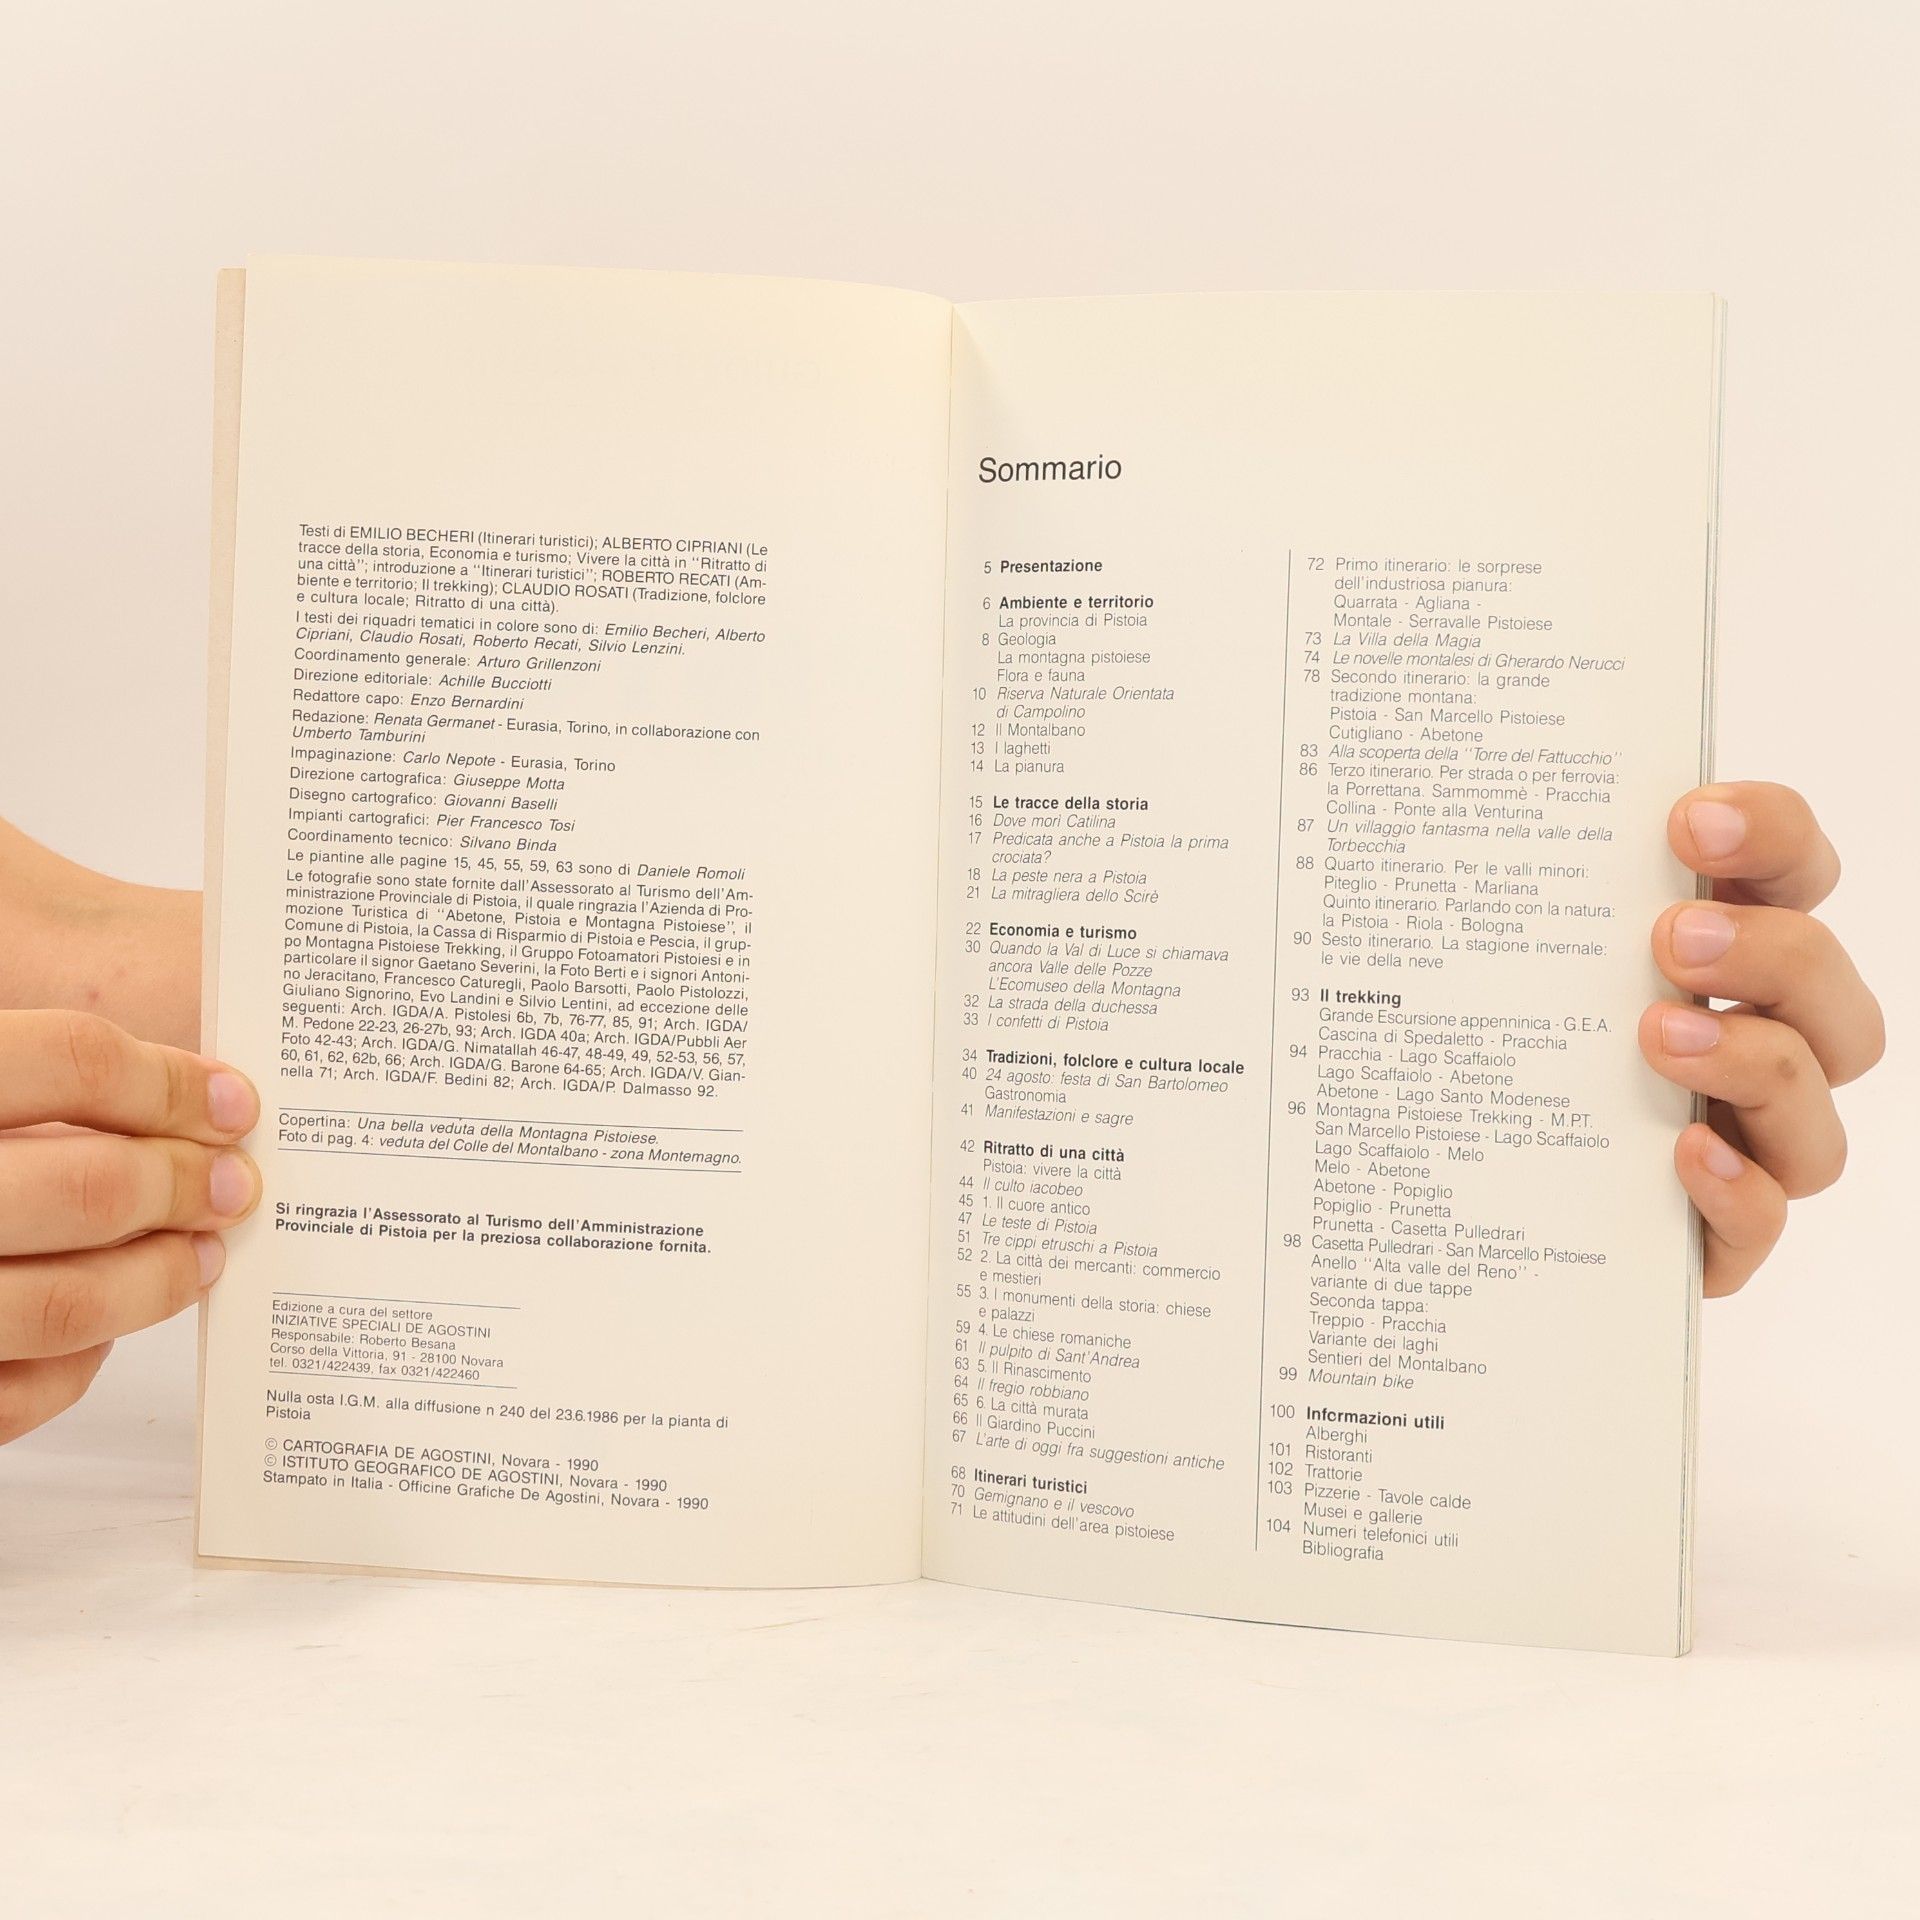 Testi di EMILIO BECHERI (Itinerari turistici); ALBERTO CIPRIANI (Le
tracce della storia, Economia e turismo; Vivere la città in ‘‘Ritratto di
una città’’; introduzione a ‘‘Itinerari turistici’’; ROBERTO RECATI (Am-
biente e territorio; Il trekking); CLAUDIO ROSATI (Tradizione, folclore
e cultura locale; Ritratto di una città).
I testi dei riquadri tematici in colore sono di: Emilio Becheri, Alberto
Cipriani, Claudio Rosati, Roberto Recati, Silvio Lenzini.
Coordinamento generale: Arturo Grillenzoni
Direzione editoriale: Achille Bucciotti
Redattore capo: Enzo Bernardini
Redazione: Renata Germanet - Eurasia, Torino, in collaborazione con
Umberto Tamburini
Impaginazione: Carlo Nepote - Eurasia, Torino
Direzione cartografica: Giuseppe Motta
Disegno cartografico: Giovanni Baselli
Impianti cartografici: Pier Francesco Tosi
Coordinamento tecnico: Silvano Binda
Le piantine alle pagine 15, 45, 55, 59, 63 sono di Daniele Romoli
Le fotografie sono state fornite dall'Assessorato al Turismo dell'Am-
ministrazione Provinciale di Pistoia, il quale ringrazia l'Azienda di Pro-
mozione Turistica di ‘‘Abetone, Pistoia e Montagna Pistoiese’’, il
Comune di Pistoia, la Cassa di Risparmio di Pistoia e Pescia, il grup-
po Montagna Pistoiese Trekking, il Gruppo Fotoamatori Pistoiesi e in
particolare il signor Gaetano Severini, la Foto Berti e i signori Antoni-
no Jeracitano, Francesco Caturegli, Paolo Barsotti, Paolo Pistolozzi,
Giuliano Signorino, Evo Landini e Silvio Lentini, ad eccezione delle
seguenti: Arch. IGDA/A. Pistolesi 6b, 7b, 76-77, 85, 91; Arch. IGDA/
M. Pedone 22-23, 26-27b, 93; Arch. IGDA 40a; Arch. IGDA/Pubbli Aer
Foto 42-43; Arch. IGDA/G. Nimatallah 46-47, 48-49, 49, 52-53, 56, 57,
60, 61, 62, 62b, 66; Arch. IGDA/G. Barone 64-65; Arch. IGDA/V. Gian-
nella 71; Arch. IGDA/F. Bedini 82; Arch. IGDA/P. Dalmasso 92.
Copertina: Una bella veduta della Montagna Pistoiese.
Foto di pag. 4: veduta del Colle del Montalbano - zona Montemagno.
Si ringrazia l'Assessorato al Turismo dell'Amministrazione
Provinciale di Pistoia per la preziosa collaborazione fornita.
Edizione a cura del settore
INIZIATIVE SPECIALI DE AGOSTINI
Responsabile: Roberto Besana
Corso della Vittoria, 91 - 28100 Novara
tel. 0321/422439, fax 0321/422460
Nulla osta I.G.M. alla diffusione n 240 del 23.6.1986 per la pianta di
Pistoia
© CARTOGRAFIA DE AGOSTINI, Novara - 1990
© ISTITUTO GEOGRAFICO DE AGOSTINI, Novara - 1990
Stampato in Italia - Officine Grafiche De Agostini, Novara - 1990
Sommario
5 Presentazione
6 Ambiente e territorio
La provincia di Pistoia
8 Geologia
La montagna pistoiese
Flora e fauna
10 Riserva Naturale Orientata
di Campolino
12 Il Montalbano
13 I laghetti
14 La pianura
15 Le tracce della storia
16 Dove morì Catilina
17 Predicata anche a Pistoia la prima
crociata?
18 La peste nera a Pistoia
21 La mitragliera dello Scirè
22 Economia e turismo
30 Quando la Val di Luce si chiamava
ancora Valle delle Pozze
L'Ecomuseo della Montagna
32 La strada della duchessa
33 I confetti di Pistoia
34 Tradizioni, folclore e cultura locale
40 24 agosto: festa di San Bartolomeo
Gastronomia
41 Manifestazioni e sagre
42 Ritratto di una città
Pistoia: vivere la città
44 Il culto iacobeo
45 1. Il cuore antico
47 Le teste di Pistoia
51 Tre cippi etruschi a Pistoia
52 2. La città dei mercanti: commercio
e mestieri
55 3. I monumenti della storia: chiese
e palazzi
59 4. Le chiese romaniche
61 Il pulpito di Sant'Andrea
63 5. Il Rinascimento
64 Il fregio robbiano
65 6. La città murata
66 Il Giardino Puccini
67 L'arte di oggi fra suggestioni antiche
68 Itinerari turistici
70 Gemignano e il vescovo
71 Le attitudini dell'area pistoiese
72 Primo itinerario: le sorprese
dell'industriosa pianura:
Quarrata - Agliana -
Montale - Serravalle Pistoiese
73 La Villa della Magia
74 Le novelle montalesi di Gherardo Nerucci
78 Secondo itinerario: la grande
tradizione montana:
Pistoia - San Marcello Pistoiese
Cutigliano - Abetone
83 Alla scoperta della ‘‘Torre del Fattucchio’’
86 Terzo itinerario. Per strada o per ferrovia:
la Porrettana. Sammommè - Pracchia
Collina - Ponte alla Venturina
87 Un villaggio fantasma nella valle della
Torbecchia
88 Quarto itinerario. Per le valli minori:
Piteglio - Prunetta - Marliana
Quinto itinerario. Parlando con la natura:
la Pistoia - Riola - Bologna
90 Sesto itinerario. La stagione invernale:
le vie della neve
93 Il trekking
Grande Escursione appenninica - G.E.A.
Cascina di Spedaletto - Pracchia
94 Pracchia - Lago Scaffaiolo
Lago Scaffaiolo - Abetone
Abetone - Lago Santo Modenese
96 Montagna Pistoiese Trekking - M.P.T.
San Marcello Pistoiese - Lago Scaffaiolo
Lago Scaffaiolo - Melo
Melo - Abetone
Abetone - Popiglio
Popiglio - Prunetta
Prunetta - Casetta Pulledrari
98 Casetta Pulledrari - San Marcello Pistoiese
Anello ‘‘Alta valle del Reno’’ -
variante di due tappe
Seconda tappa:
Treppio - Pracchia
Variante dei laghi
Sentieri del Montalbano
99 Mountain bike
100 Informazioni utili
Alberghi
101 Ristoranti
102 Trattorie
103 Pizzerie - Tavole calde
Musei e gallerie
104 Numeri telefonici utili
Bibliografia